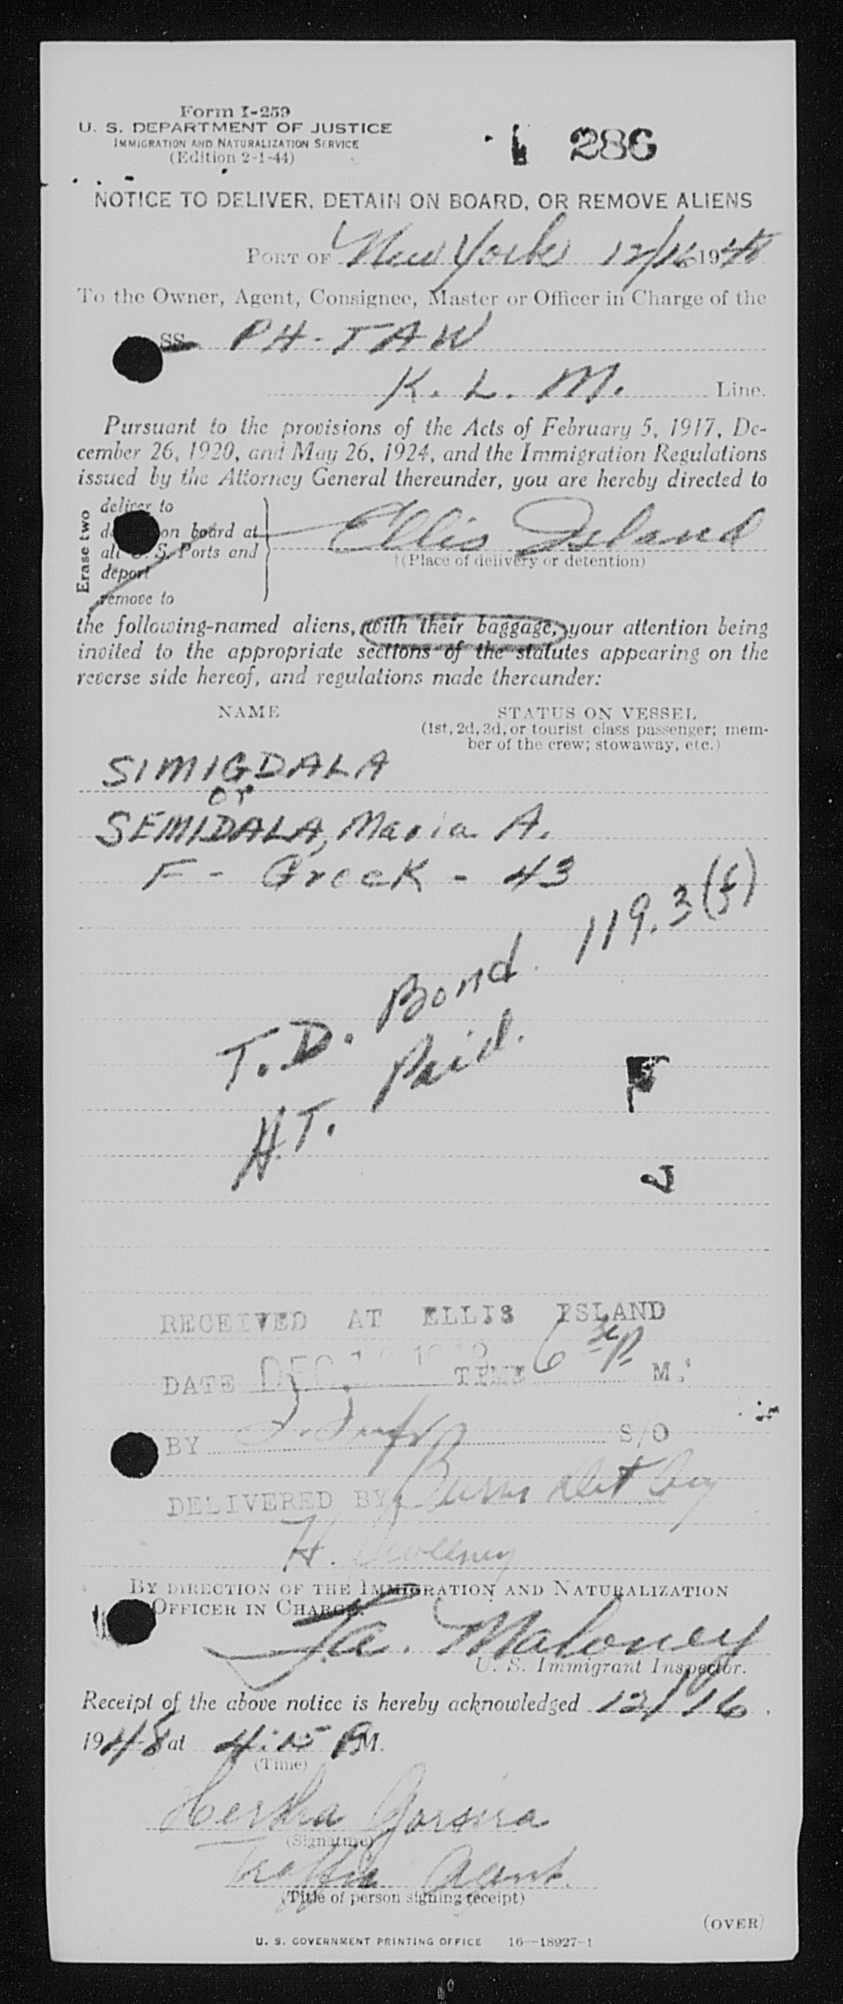 Form I-259
U. S. DEPARTMENT OF JUSTICE
IMMIGRATION AND NATURALIZATION SERVICE
(Edition 2-1-44)
286
NOTICE TO DELIVER, DETAIN ON BOARD, OR REMOVE ALIENS
PORT OF New York 12/16 1948
To the Owner, Agent, Consignee, Master or Officer in Charge of the
SS PH-TAW
K. L. M. Line.
Pursuant to the provisions of the Acts of February 5, 1917, De-
cember 26, 1920, and May 26, 1924, and the Immigration Regulations
issued by the Attorney General thereunder, you are hereby directed to
Erase two
deliver to
on board at
all U. S. Ports and
deport
remove to
Ellis Island
†(Place of delivery or detention)
the following-named aliens, with their baggage, your attention being
invited to the appropriate sections of the statutes appearing on the
reverse side hereof, and regulations made thereunder:
NAME
STATUS ON VESSEL
(1st, 2d, 3d, or tourist class passenger; mem-
ber of the crew; stowaway, etc.)
SIMIGDALA
or
SEMIDALA, Maria A.
F - Greek - 43
T. D. Bond. 119.3
H.T. Paid.
RECEIVED AT ELLIS ISLAND
DATE DEC TIME 6 30 P M.
BY S/O
DELIVERED BY Burns Det
H. Sweeney
BY DIRECTION OF THE IMMIGRATION AND NATURALIZATION
OFFICER IN CHARGE.
Maloney
U. S. Immigrant Inspector.
Receipt of the above notice is hereby acknowledged 12/16.
1948 at 4:15 P M.
(Time)
Hertha
(Signature)
Traffic Agent.
(Title of person signing receipt)
(OVER)
U. S. GOVERNMENT PRINTING OFFICE 16—18927-1